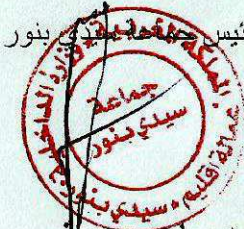 رئيس جماعة سيدي بنور
المملكة المغربية وزارة الداخلية
عمالة إقليم سيدي بنور
جماعة
سيدي بنور